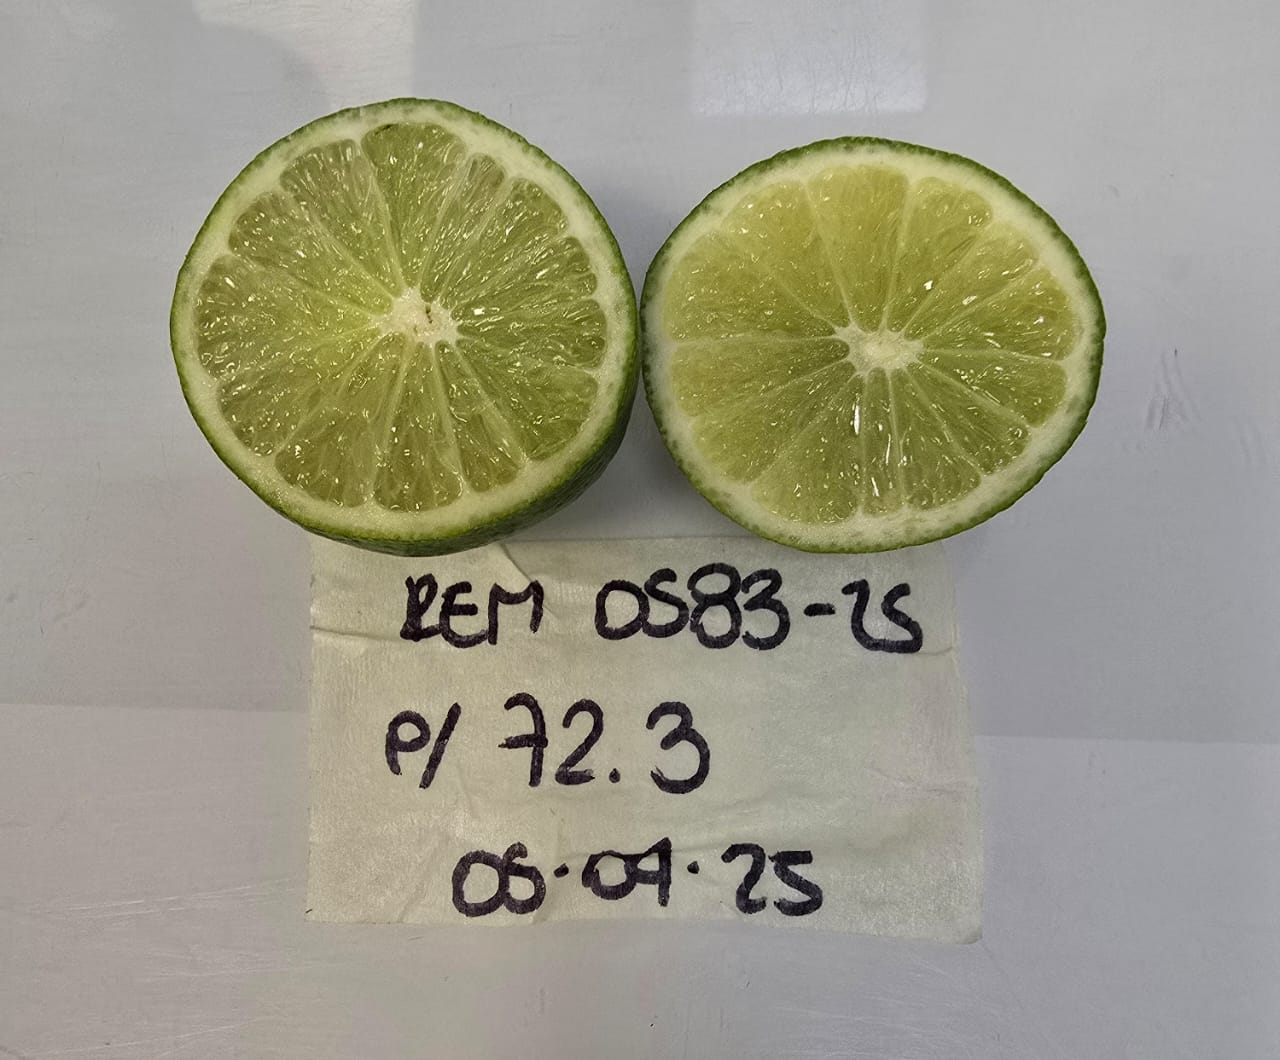 REM 0583-25
P/ 72.3
05.09.25